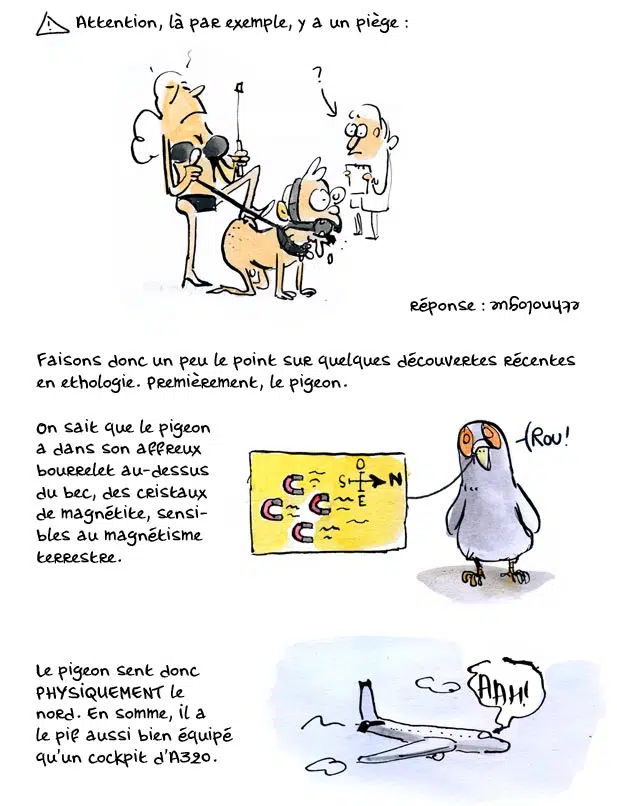 Attention, là par exemple, y a un piège :
?
réponse : ethnologue
Faisons donc un peu le point sur quelques découvertes récentes
en ethologie. Premièrement, le pigeon.
On sait que le pigeon
a dans son affreux
bourrelet au-dessus
du bec, des cristaux
de magnétite, sensi-
bles au magnétisme
terrestre.
O
S N
E
Rou!
Le pigeon sent donc
PHYSIQUEMENT le
nord. En somme, il a
le pif aussi bien équipé
qu'un cockpit d'A320.
AAH!